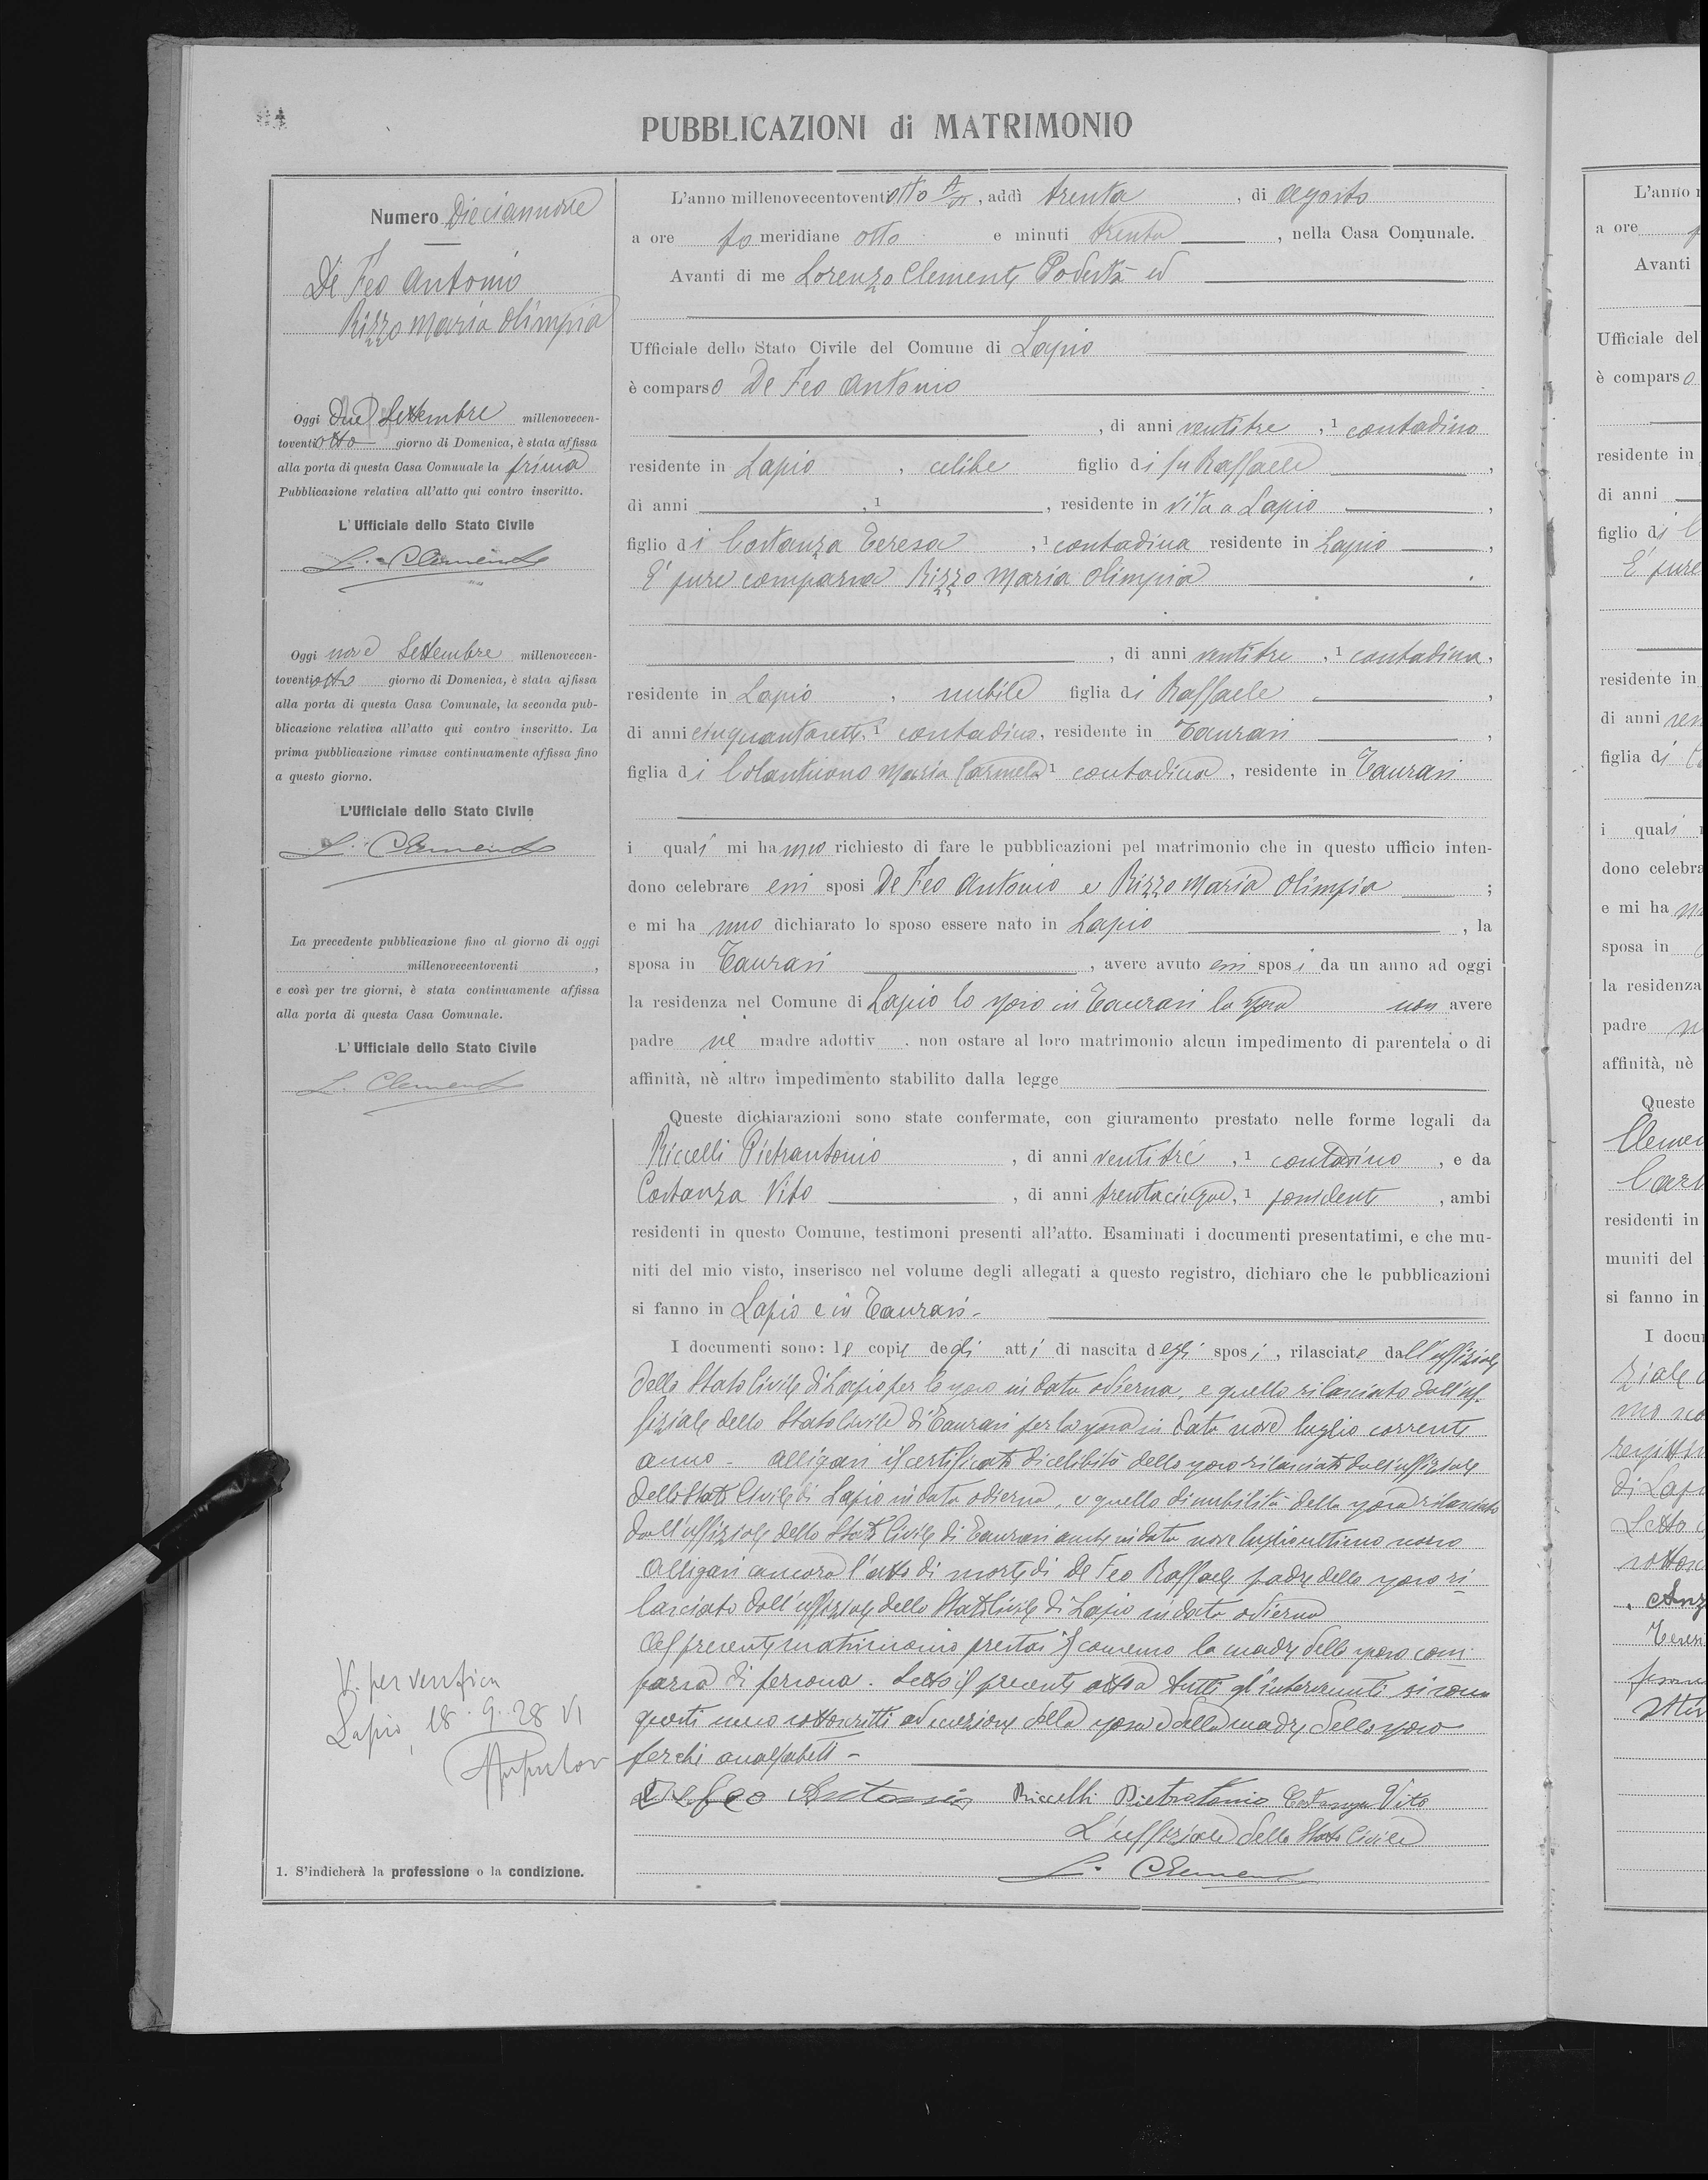 PUBBLICAZIONI di MATRIMONIO
Numero Diciannove
De Feo Antonio
Rizzo Maria Olimpia
Oggi Due Settembre millenovecen-
toventiotto giorno di Domenica, è stata affissa
alla porta di questa Casa Comunale la prima
Pubblicazione relativa all'atto qui contro inscritto.
L'Ufficiale dello Stato Civile
L. Clemente
Oggi nove Settembre millenovecen-
toventiotto giorno di Domenica, è stata affissa
alla porta di questa Casa Comunale, la seconda pub-
blicazione relativa all'atto qui contro inscritto. La
prima pubblicazione rimase continuamente affissa fino
a questo giorno.
L'Ufficiale dello Stato Civile
L. Clemente
La precedente pubblicazione fino al giorno di oggi
millenovecentoventi ,
e così per tre giorni, è stata continuamente affissa
alla porta di questa Casa Comunale.
L'Ufficiale dello Stato Civile
L. Clemente
V. per verifica
Lapio, 18.9.28 VI
1. S'indicherà la professione o la condizione.
L'anno millenovecentoventiotto A/VI, addì trenta, di agosto
a ore po meridiane otto e minuti trenta, nella Casa Comunale.
Avanti di me Lorenzo Clemente Podestà ed
Ufficiale dello Stato Civile del Comune di Lapio
è comparso De Feo Antonio
, di anni ventitre, 1 contadino
residente in Lapio, celibe figlio di fu Raffaele,
di anni , 1 , residente in vita a Lapio,
figlio di Costanza Teresa, 1 contadina residente in Lapio,
E' pure comparsa Rizzo Maria Olimpia
, di anni ventitre, 1 contadina,
residente in Lapio, nubile figlia di Raffaele,
di anni cinquantasette, 1 contadino, residente in Taurasi,
figlia di Colantuono Maria Carmela 1 contadina, residente in Taurasi
i quali mi hanno richiesto di fare le pubblicazioni pel matrimonio che in questo ufficio inten-
dono celebrare essi sposi De Feo Antonio e Rizzo Maria Olimpia ;
e mi hanno dichiarato lo sposo essere nato in Lapio, la
sposa in Taurasi, avere avuto essi sposi da un anno ad oggi
la residenza nel Comune di Lapio lo sposo in Taurasi la sposa non avere
padre nè madre adottiv . non ostare al loro matrimonio alcun impedimento di parentela o di
affinità, nè altro impedimento stabilito dalla legge
Queste dichiarazioni sono state confermate, con giuramento prestato nelle forme legali da
Riccelli Pietrantonio, di anni ventitré, 1 contadino, e da
Costanza Vito, di anni trentacinque, 1 possidente, ambi
residenti in questo Comune, testimoni presenti all'atto. Esaminati i documenti presentatimi, e che mu-
niti del mio visto, inserisco nel volume degli allegati a questo registro, dichiaro che le pubblicazioni
si fanno in Lapio e in Taurasi.
I documenti sono: le copie degli atti di nascita degli sposi, rilasciate dall'uffiziale
dello Stato Civile di Lapio per lo sposo in data odierna, e quello rilasciato dall'uf-
fiziale dello Stato Civile di Taurasi per la sposa in data nove luglio corrente
anno - alligasi il certificato di celibità dello sposo rilasciato dall'uffiziale
dello Stato Civile di Lapio in data odierna, e quello di nubilità della sposa rilasciato
dall'uffiziale dello Stato Civile di Taurasi anche in data nove luglio ultimo
Alligasi ancora l'atto di morte di De Feo Raffaele padre dello sposo ri-
lasciato dall'uffiziale dello Stato Civile di Lapio in data odierna
Al presente matrimonio prestasi il consenso la madre dello sposo com-
parsa di persona. Letto il presente atto a tutti gl'intervenuti si sono
questi meco sottoscritti ad eccezione della sposa e della madre dello sposo
perchè analfabeti -
De Feo Antonio Riccelli Pietratonio Costanza Vito
L'uffiziale dello Stato Civile
L. Clemente
L'anno
a ore
Avanti
Ufficiale del
è comparso
residente in
di anni
figlio di
E' pure
residente in
di anni
figlia di
i quali
dono celebra
e mi ha
sposa in
la residenza
padre
affinità, nè
Queste
residenti in
muniti del
si fanno in
I docu